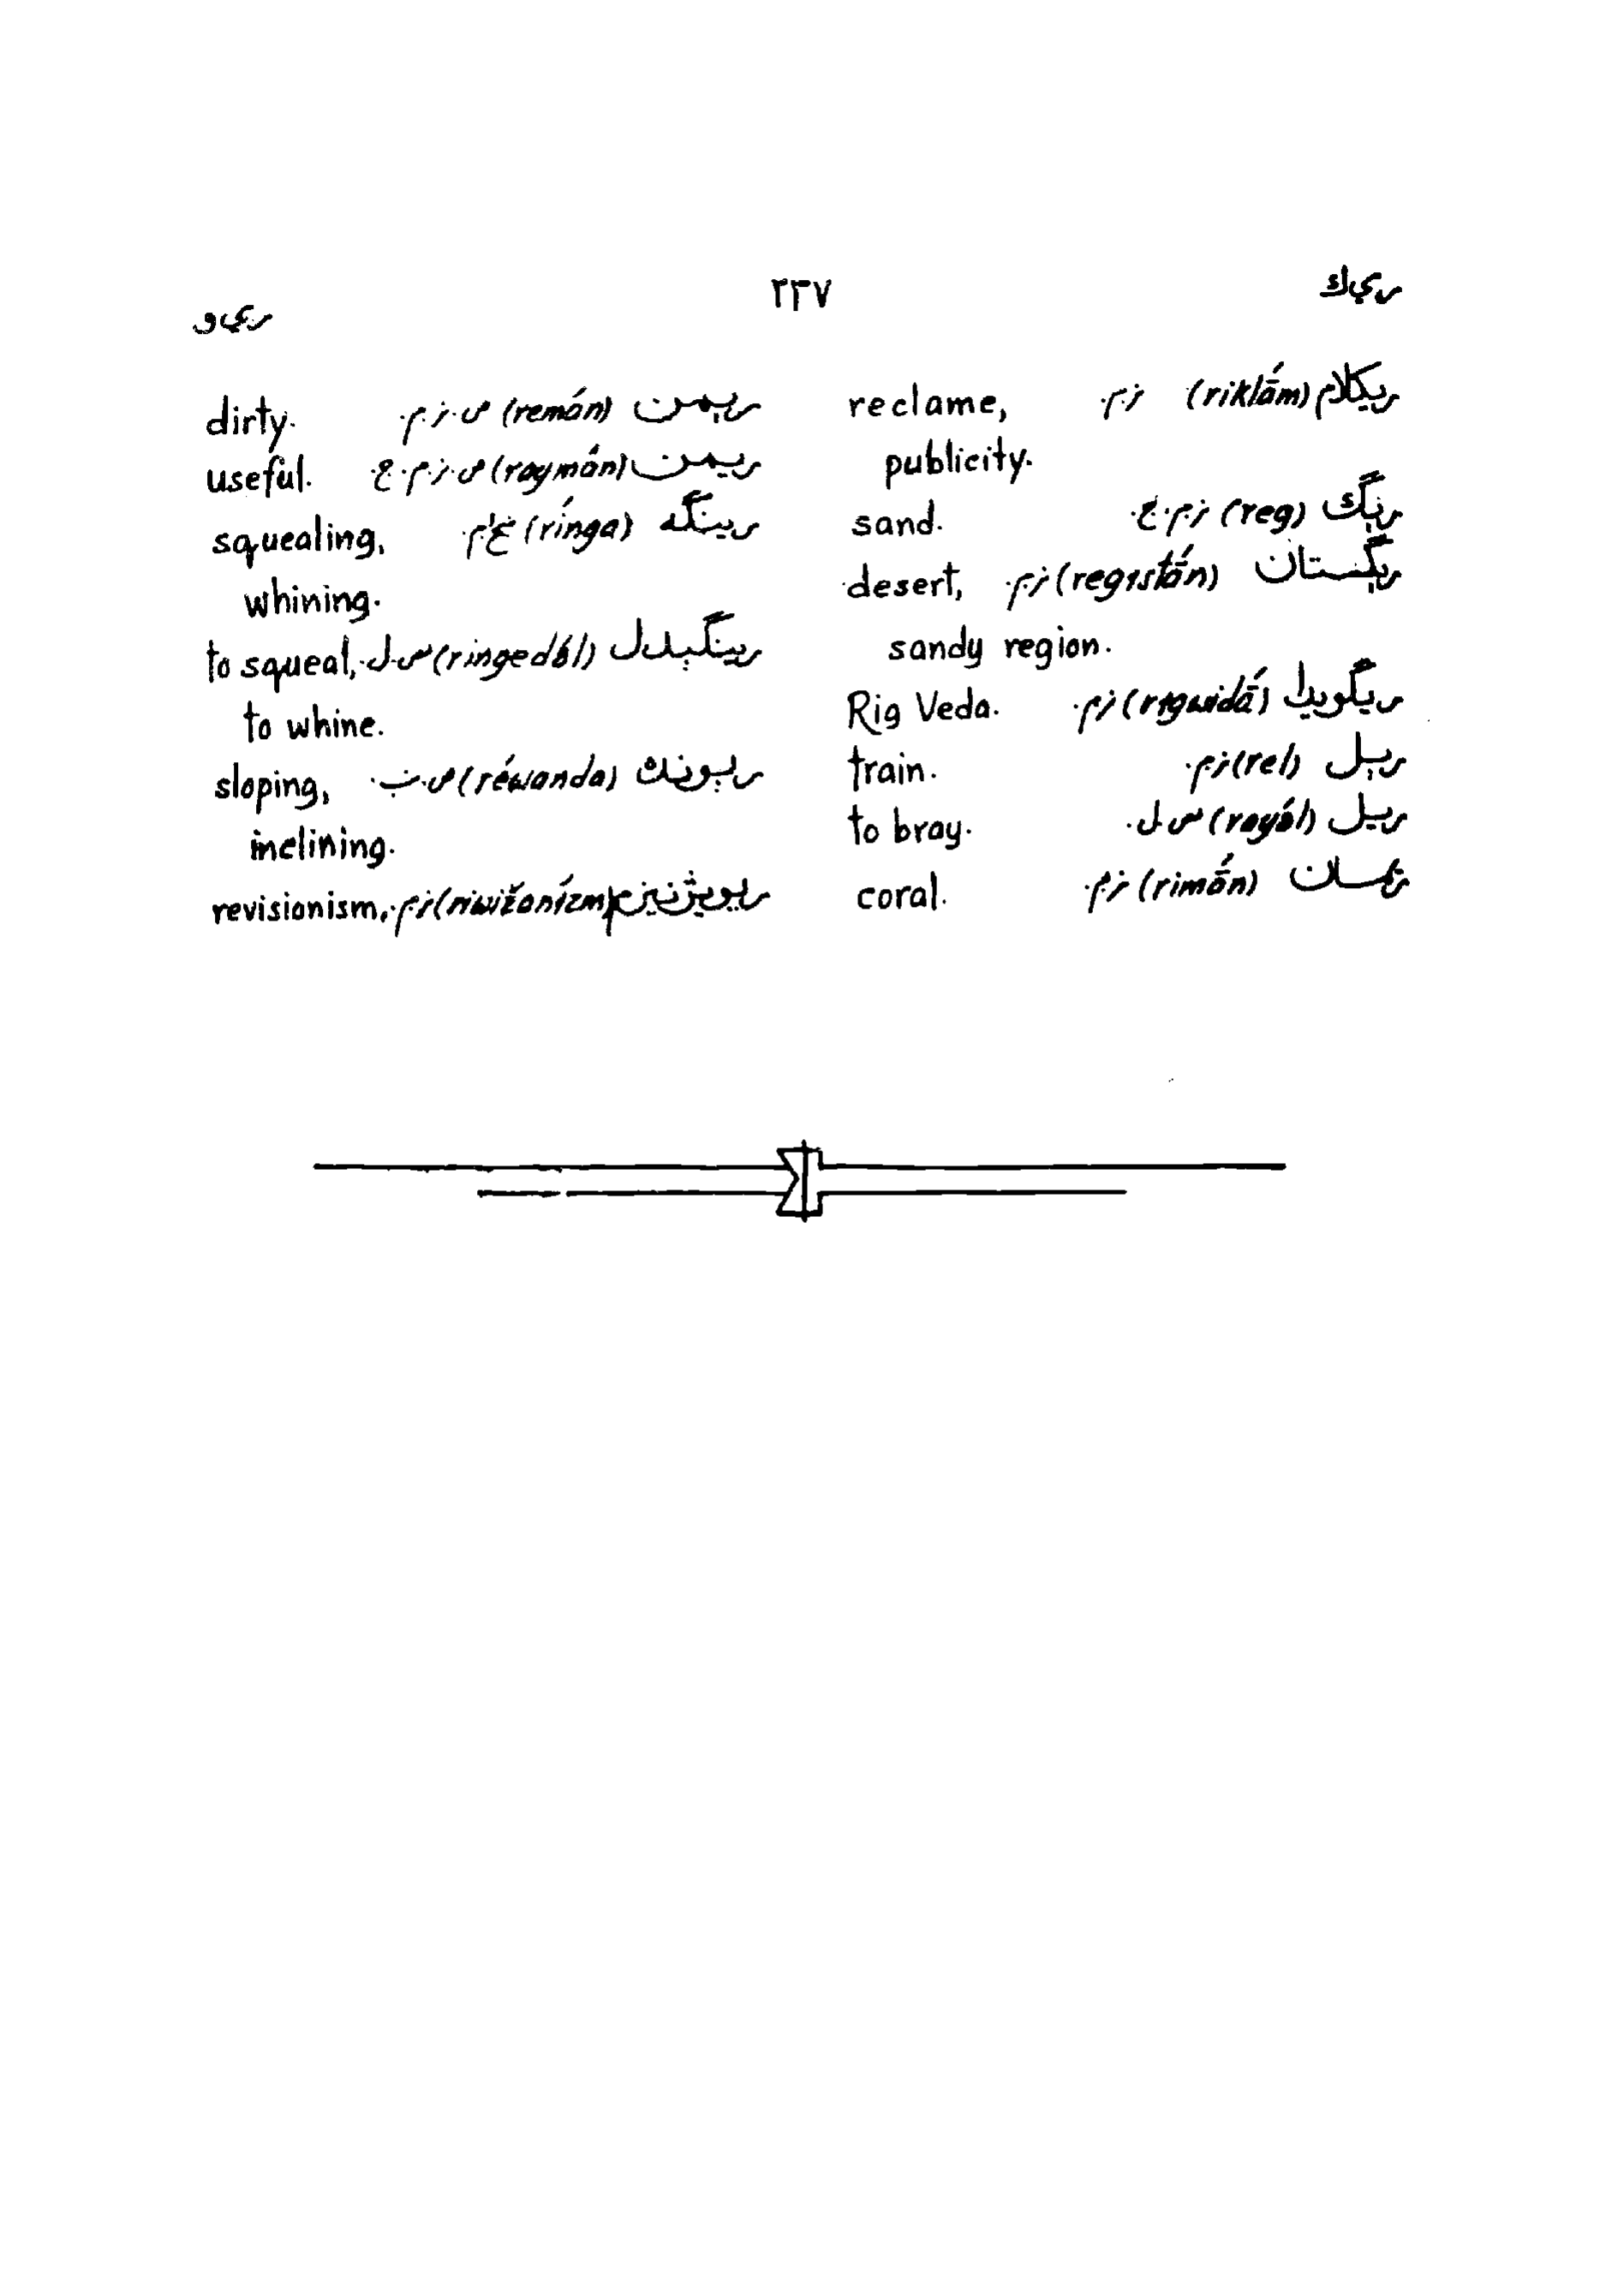 ريك
٢٣٧
ريو
ريكلام (riklā́m) ز.م. reclame,
publicity.
رېګ (reg) ز.م.ع. sand.
رېګستان (registā́n) ز.م. desert,
sandy region.
ريګويدا (rigwidā́) ز.م. Rig Veda.
رېل (rel) ز.م. train.
ريل (rayə́l) س.ل. to bray.
ريمان (rimā́n) ز.م. coral.
رېمن (remán) ص.ز.م. dirty.
ريمن (raymán) ص.ز.م.ع. useful.
رينګه (rínga) squealing,
whining.
رينګېدل (ringedə́l) س.ل. to squeal,
to whine.
رېوند (réwanda) ص.ښ. sloping,
inclining.
ريويژنيزم (riwižanízm) ز.م. revisionism.